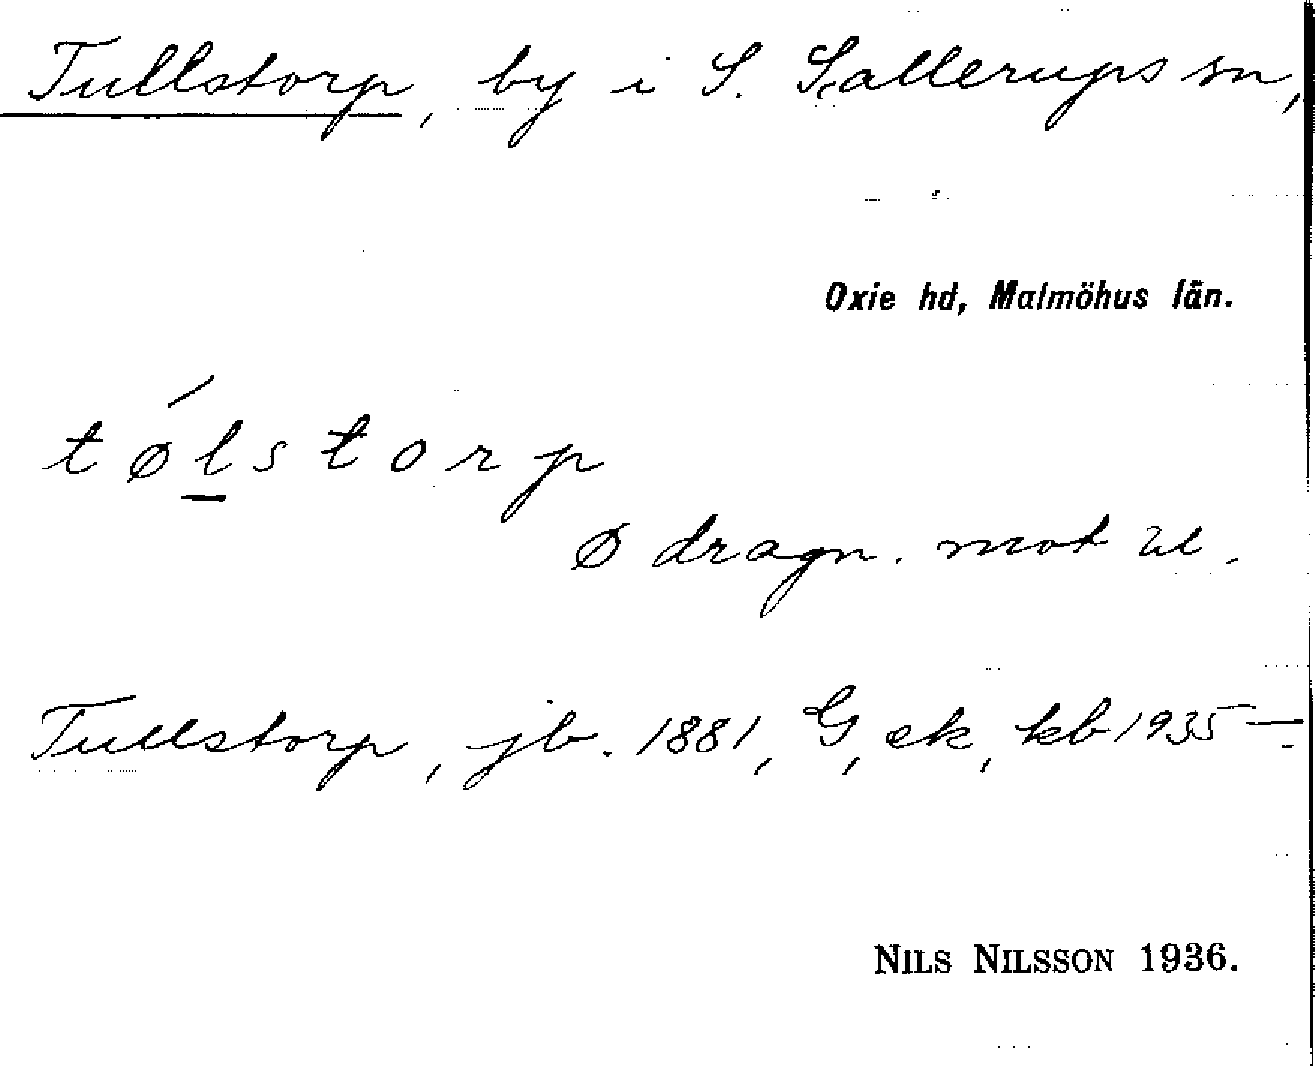 Tullstorp, by i S. Sallerups sn,
Oxie hd, Malmöhus län.
tǿlstorp
ø dragn. mot u.
Tullstorp, jb. 1881, G, ek, kb 1935 —
NILS NILSSON 1936.